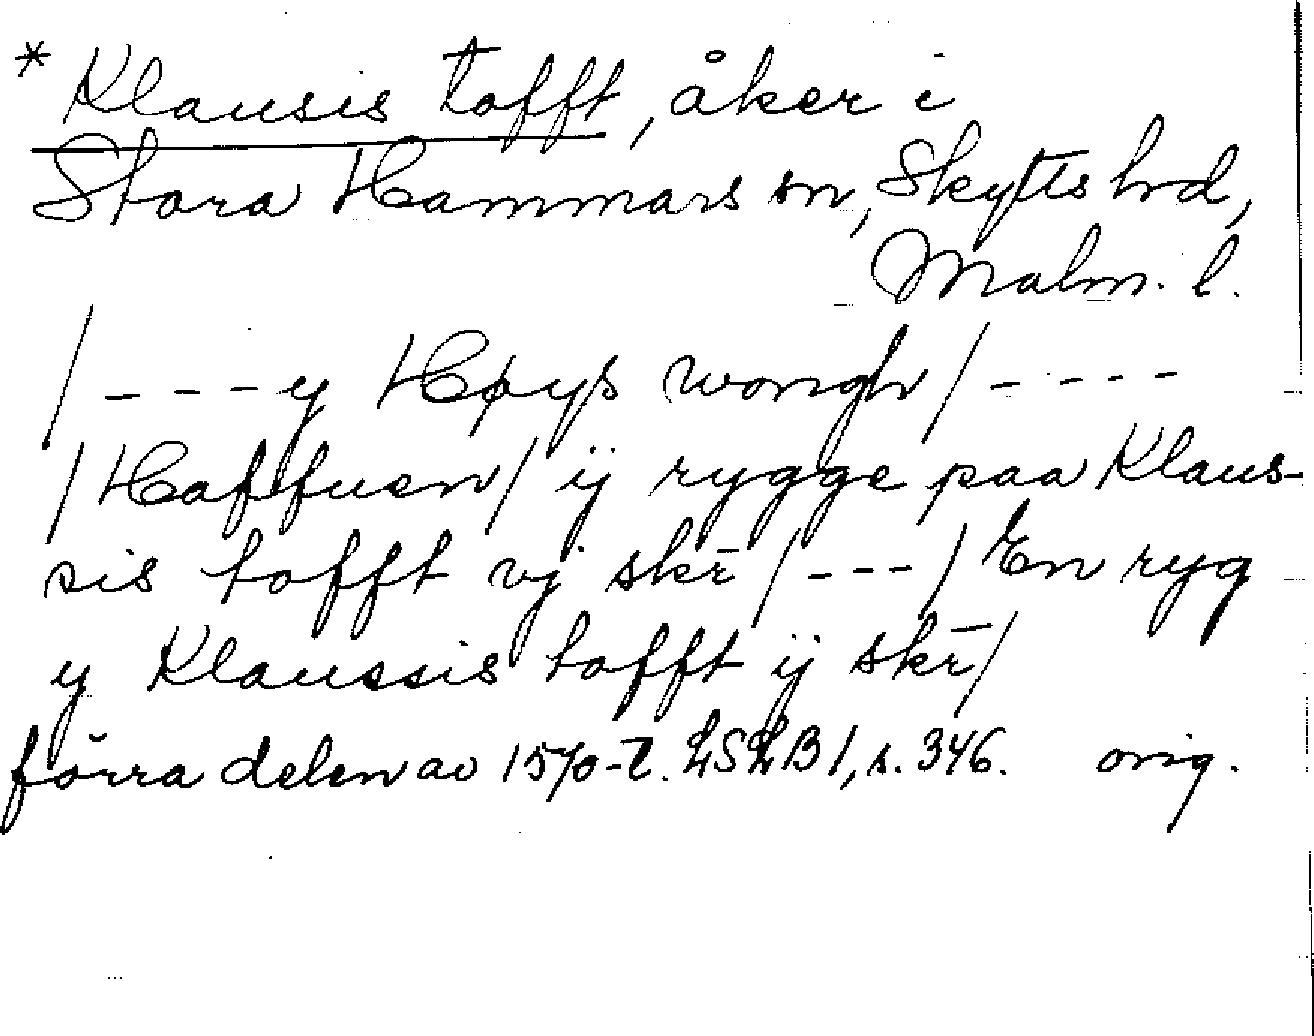 * Klausis tofft, åker i
Stora Hammars sn, Skytts hrd,
Malm. l.
/ - - - y Høys wongh / - - - -
/ Haffuer / ij rygge paa Klaus-
sis tofft vj skr̄ / - - - / En ryg
y Klaussis tofft ij skr̄ /
förra delen av 1570-t. LSLB 1, s. 346. orig.